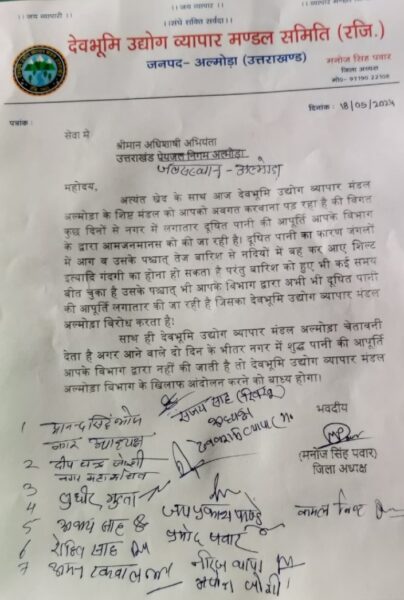 ।। जय व्यापार ।।
।।संघे शक्ति सर्वदा।।
।। जय व्यापारी ।।
देवभूमि उद्योग व्यापार मण्डल समिति (रजि.)
जनपद- अल्मोड़ा (उत्तराखण्ड)
मनोज सिंह पवार
जिला अध्यक्ष
मो०- 91190 22108
पत्रांक :
दिनांक : 18/05/2024
सेवा में
श्रीमान अधिशाषी अभियंता
उत्तराखंड पेयजल निगम अल्मोड़ा
जल संस्थान - अल्मोड़ा
महोदय,
अत्यंत खेद के साथ आज देवभूमि उद्योग व्यापार मंडल
अल्मोड़ा के शिष्ट मंडल को आपको अवगत करवाना पड़ रहा है की विगत
कुछ दिनों से नगर में लगातार दूषित पानी की आपूर्ति आपके विभाग
के द्वारा आमजनमानस को की जा रही है। दूषित पानी का कारण जंगलों
में आग व उसके पश्चात् तेज बारिश से नदियों में बह कर आए शिल्ट
इत्यादि गंदगी का होना हो सकता है परंतु बारिश को हुए भी कई समय
बीत चुका है उसके पश्चात् भी आपके विभाग द्वारा अभी भी दूषित पानी
की आपूर्ति लगातार की जा रही है जिसका देवभूमि उद्योग व्यापार मंडल
अल्मोड़ा बिरोध करता है।
साथ ही देवभूमि उद्योग व्यापार मंडल अल्मोड़ा चेतावनी
देता है अगर आने वाले दो दिन के भीतर नगर में शुद्ध पानी की आपूर्ति
आपके विभाग द्वारा नहीं की जाती है तो देवभूमि उद्योग व्यापार मंडल
अल्मोड़ा विभाग के खिलाफ आंदोलन करने को बाध्य होगा।
भवदीय
(मनोज सिंह पवार)
जिला अध्यक्ष
1 आनन्द सिंह
नगर अध्यक्ष
संजय साह
अध्यक्ष
2 दीप चन्द्र जोशी
नगर महासचिव
3
4 सुधीर गुप्ता
जय प्रकाश पाण्डे
5 अजय साह
प्रमोद पवार
6 रोहित साह
7 अमन टकवाल